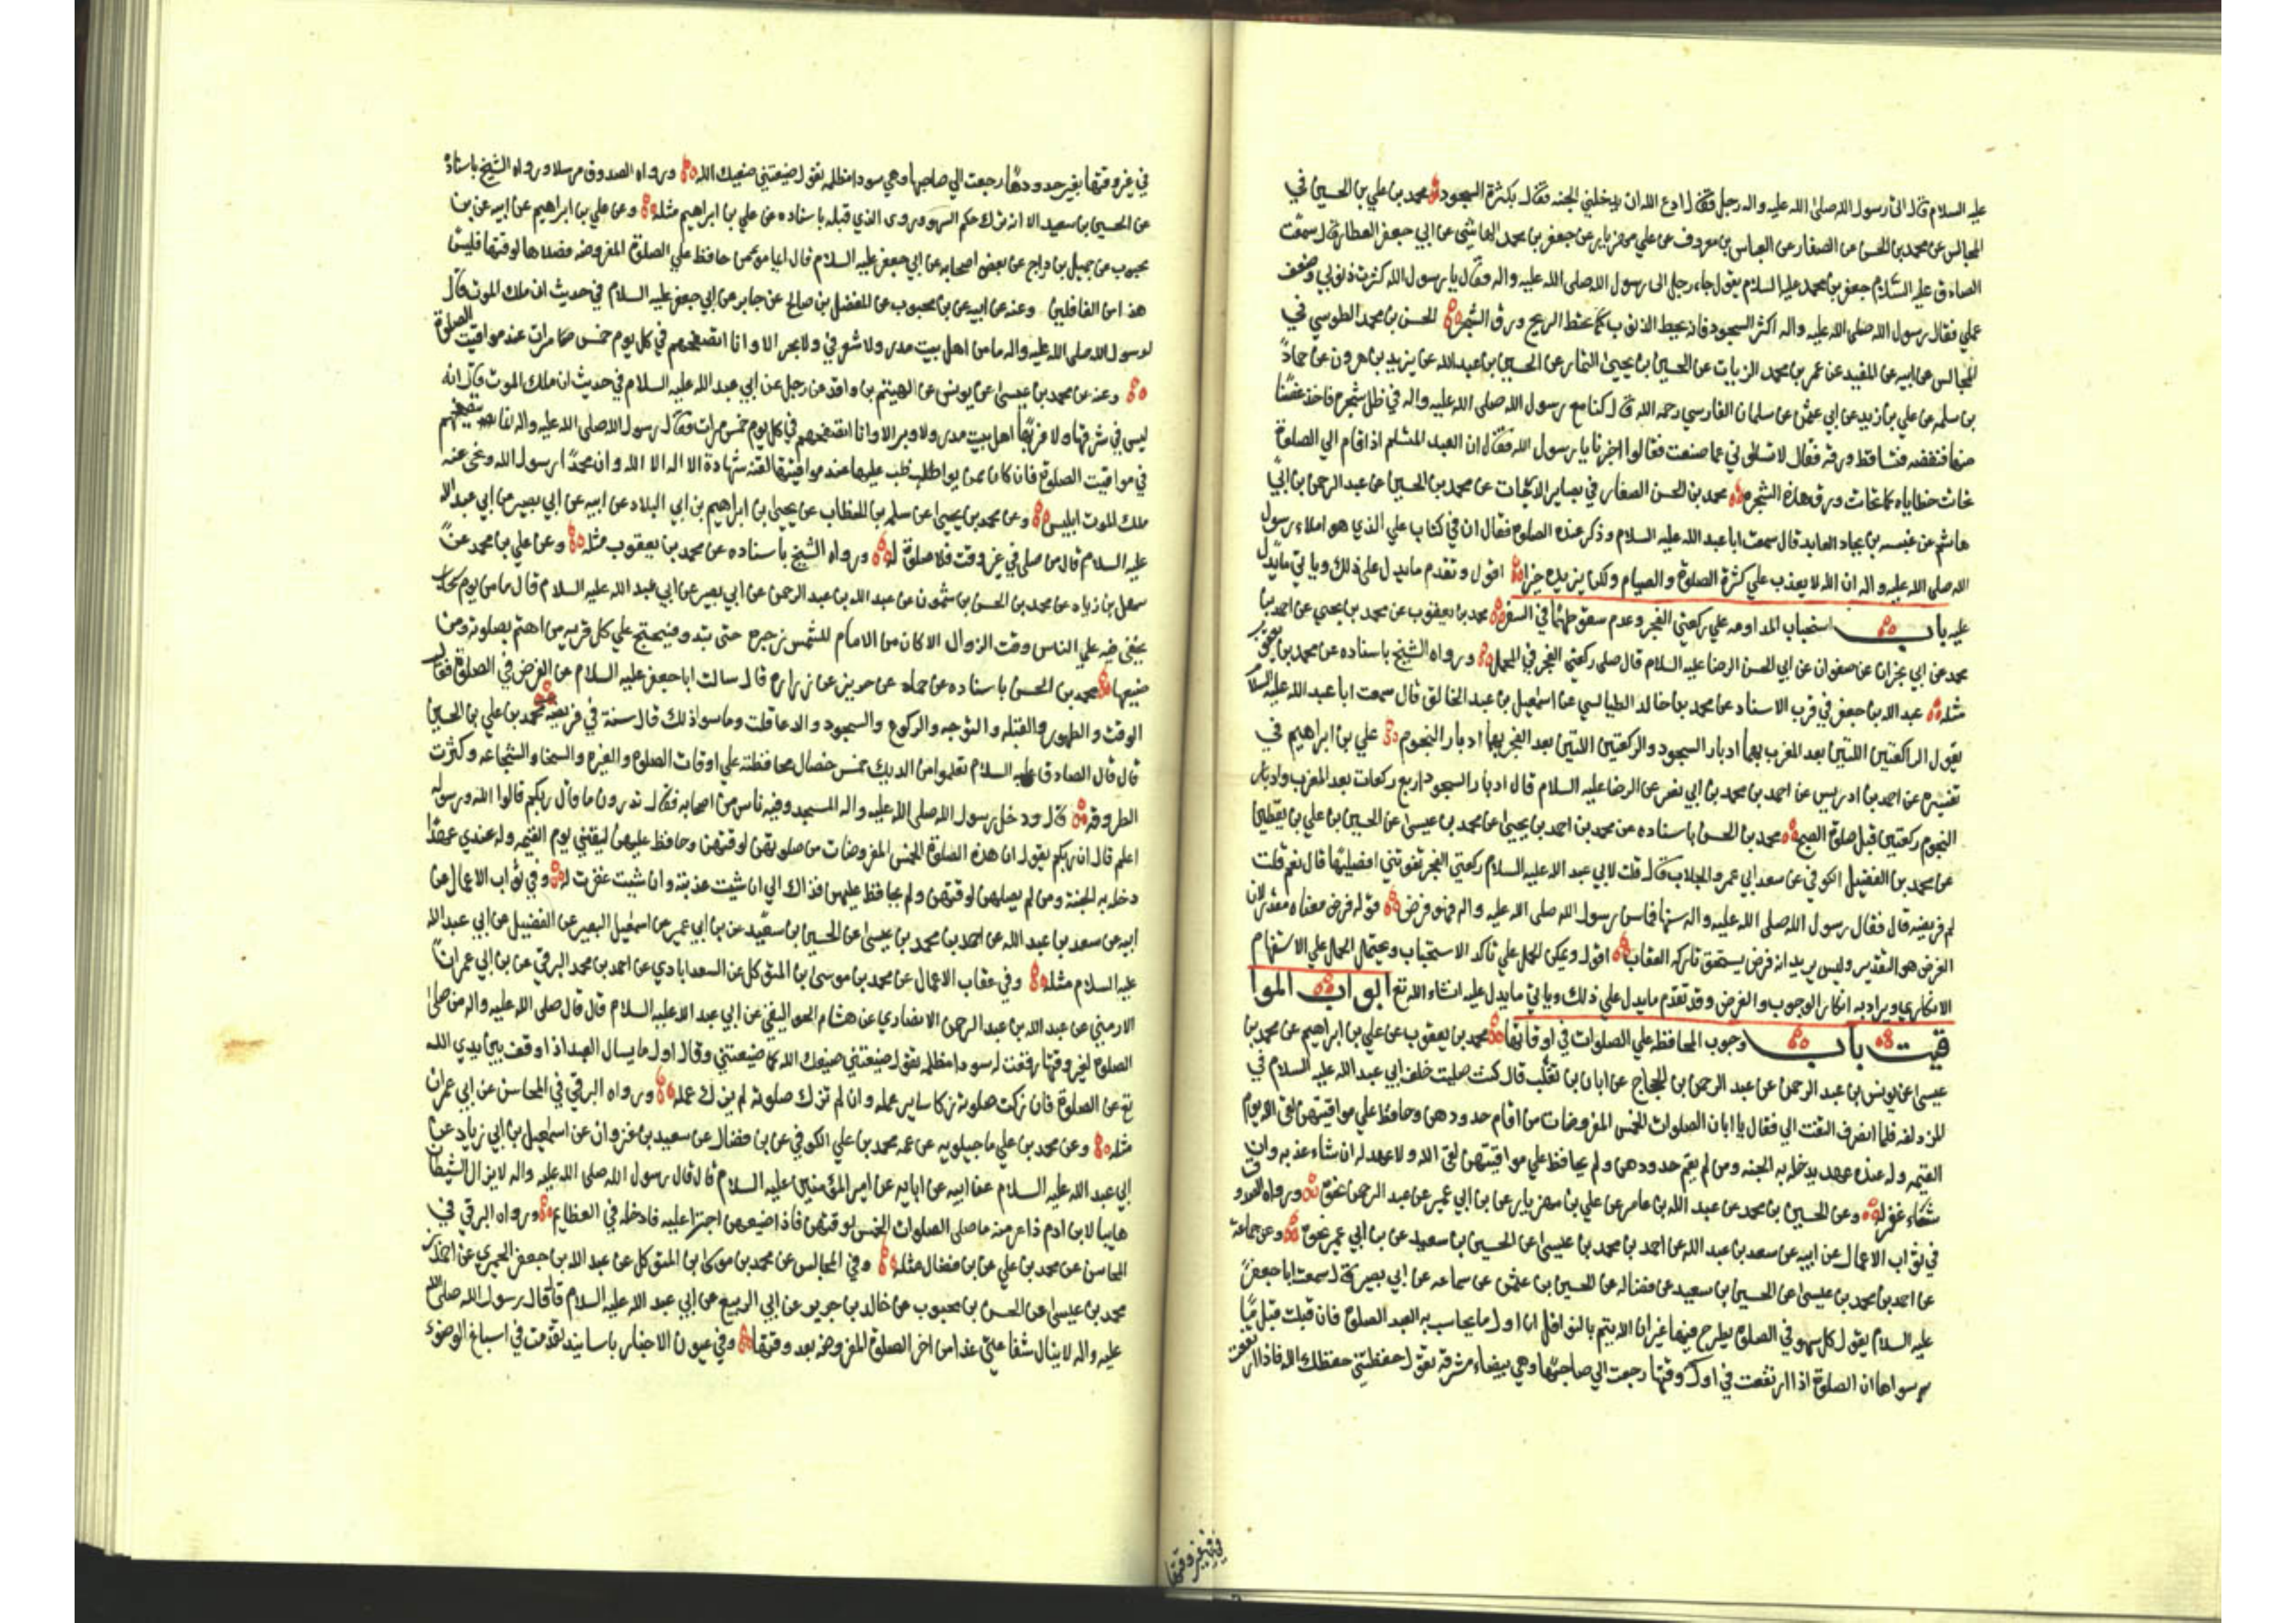 عليه السلام قال اتى رسول الله صلى الله عليه واله رجل فقال ادع الله ان يدخلني الجنه فقال بكثرة السجود محمد بن علي بن الحسين في
المجالس عن محمد بن الحسن عن الصفار عن العباس بن معروف عن علي بن مهزيار عن جعفر بن محمد الهاشمي عن ابي جعفر العطار قال سمعت
الصادق عليه السلام جعفر بن محمد عليه السلام يقول جاء رجل الى رسول الله صلى الله عليه واله فقال يا رسول الله كثرت ذنوبي وضعف
عملي فقال رسول الله صلى الله عليه واله اكثر السجود فانه يحط الذنوب كما تحط الريح ورق الشجر الحسن بن محمد الطوسي في
المجالس عن ابيه عن المفيد عن عمر بن محمد الزيات عن الحسين بن يحيى التمار عن الحسين بن عبد الله عن يزيد بن هرون عن حماد
بن سلمه عن علي بن زيد عن ابي عثمن عن سلمان الفارسي رحمه الله قال كنا مع رسول الله صلى الله عليه واله في ظل شجرة فاخذ غصنا
منها فنفضه فتساقط ورقه فقال لا تسالوني عما صنعت فقالوا اخبرنا يا رسول الله فقال ان العبد المسلم اذا قام الي الصلوة
تحات خطاياه كما تحات ورق هذه الشجره محمد بن الحسن الصفار في بصاير الدرجات عن محمد بن الحسين عن عبد الرحمن بن ابي
هاشم عن عنبسه بن بجاد العابد قال سمعت ابا عبد الله عليه السلام وذكر عنده الصلوة فقال ان في كتاب علي الذي هو املاء رسول
الله صلى الله عليه واله ان الله لا يعذب علي كثرة الصلوة والصيام ولكن يزيده خيرا اقول وتقدم ما يدل على ذلك وياتي ما يدل
عليه باب استحباب المداومه علي ركعتي الفجر وعدم سقوطهما في السفر محمد بن يعقوب عن محمد بن يحيي عن احمد بن
محمد عن ابي نجران عن صفوان عن ابي الحسن الرضا عليه السلام قال صلى ركعتي الفجر في المحمل ورواه الشيخ باسناده عن محمد بن يعقوب
مثله عبد الله بن جعفر في قرب الاسناد عن محمد بن خالد الطيالسي عن اسمعيل بن عبد الخالق قال سمعت ابا عبد الله عليه السلام
يقول الركعتين اللتين بعد المغرب هما ادبار السجود والركعتين اللتين بعد الفجر هما ادبار النجوم علي بن ابراهيم في
تفسيره عن احمد بن ادريس عن احمد بن محمد بن ابي نصر عن الرضا عليه السلام قال ادبار السجود اربع ركعات بعد المغرب وادبار
النجوم ركعتين قبل صلوة الصبح محمد بن الحسن باسناده عن محمد بن احمد بن يحيى عن محمد بن عيسى عن الحسين بن علي بن يقطين
عن محمد بن الفضيل الكوفي عن سعد ابي عمرو الجلاب قال قلت لابي عبد الله عليه السلام ركعتي الفجر تفوتني افصليها قال نعم قلت
لم فريضه قال فقال رسول الله صلى الله عليه واله سنها فما سن رسول الله صلى الله عليه واله فهو فرض قوله فرض معناه مقدر لان
الفرض هو التقدير وليس يريد انه فرض يستحق تاركه العقاب اقول ويمكن الحمل علي تاكد الاستحباب ويحتمل الحمل علي الاستفهام
الانكاري ويراد به انكار الوجوب والفرض وقد تقدم ما يدل علي ذلك وياتي ما يدل عليه انشاء الله تع ابواب الموا
قيت باب وجوب المحافظه علي الصلوات في اوقاتها محمد بن يعقوب عن علي بن ابراهيم عن محمد بن
عيسى عن يونس بن عبد الرحمن عن عبد الرحمن بن الحجاج عن ابان بن تغلب قال كنت صليت خلف ابي عبد الله عليه السلام في
المزدلفه فلما انصرف التفت الي فقال يا ابان الصلوات الخمس المفروضات من اقام حدودهن وحافظ علي مواقيتهن لقي الله يوم
القيمه وله عنده عهد يدخله به الجنه ومن لم يقم حدودهن ولم يحافظ علي مواقيتهن لقي الله ولا عهد له ان شاء عذبه وان
شاء غفر له وعن الحسين بن محمد عن عبد الله بن عامر عن علي بن مهزيار عن بن ابي عمير عن عبد الرحمن نحوه ورواه الصدوق
في ثواب الاعمال عن ابيه عن سعد بن عبد الله عن احمد بن محمد بن عيسى عن الحسين بن سعيد عن بن ابي عمير نحوه وعن جماعة
عن احمد بن محمد بن عيسى عن الحسين بن سعيد عن فضاله عن الحسين بن عثمن عن سماعه عن ابي بصير قال سمعت ابا جعفر
عليه السلام يقول كل سهو في الصلوة يطرح منها غير ان الله يتم بالنوافل ان اول ما يحاسب به العبد الصلوة فان قبلت قبل ما
سواها ان الصلوة اذا ارتفعت في اول وقتها رجعت الي صاحبها وهي بيضاء مشرقه تقول حفظتني حفظك الله فاذا ارتفعت
في غير وقتها
في غير وقتها بغير حدودها رجعت الي صاحبها وهي سودا مظلمه تقول ضيعتني ضيعك الله ورواه الصدوق مرسلا ورواه الشيخ باسناده
عن الحسين بن سعيد الا انه ترك حكم السهو وروى الذي قبله باسناده عن علي بن ابراهيم مثله وعن علي بن ابراهيم عن ابيه عن بن
محبوب عن جميل بن دراج عن بعض اصحابه عن ابي جعفر عليه السلام قال ايما مومن حافظ علي الصلوة المفروضه فصلاها لوقتها فليس
هذا من الغافلين وعنه عن ابيه عن بن محبوب عن المفضل بن صالح عن جابر عن ابي جعفر عليه السلام في حديث ان ملك الموت قال
لرسول الله صلى الله عليه واله ما من اهل بيت مدر ولا شعر في ولا بحر الا وانا اتصفحهم في كل يوم خمس مرات عند مواقيت الصلوة
وعنه عن محمد بن عيسى عن يونس عن الهيثم بن واقد عن رجل عن ابي عبد الله عليه السلام في حديث ان ملك الموت قال انه
ليس في شرقها ولا غربها اهل بيت مدر ولا وبر الا وانا اتصفحهم في كل يوم خمس مرات فقال رسول الله صلى الله عليه واله انما يتصفحهم
في مواقيت الصلوة فان كان ممن يواظب عليها عند مواقيتها لقنه شهادة الا اله الا الله وان محمدا رسول الله ونحى عنه
ملك الموت ابليس وعن محمد بن يحيى عن سلمه بن الخطاب عن يحيى بن ابراهيم بن ابي البلاد عن ابيه عن ابي بصير عن ابي عبد الله
عليه السلام قال من صلى في غير وقت فلا صلوة له ورواه الشيخ باسناده عن محمد بن يعقوب مثله وعن علي بن محمد عن
سهل بن زياد عن محمد بن الحسن بن شمون عن عبد الله بن عبد الرحمن عن ابي بصير عن ابي عبد الله عليه السلام قال ما من يوم سحاب
يخفى فيه علي الناس وقت الزوال الا كان من الامام للشمس زجره حتى تبدو فيحتج علي كل قريه من اهتم بصلوته ومن
ضيعها محمد بن الحسن باسناده عن حماد عن حريز عن زراره قال سالت ابا جعفر عليه السلام عن الفرض في الصلوة فقال
الوقت والطهور والقبله والتوجه والركوع والسجود والدعا قلت وما سوا ذلك قال سنة في فريضه محمد بن علي بن الحسين
قال قال الصادق عليه السلام تعلموا من الديك خمس خصال محافظته علي اوقات الصلوة والغيره والسخا والشجاعه وكثرت
الطروقه قال ودخل رسول الله صلى الله عليه واله المسجد وفيه ناس من اصحابه فقال تدرون ما قال ربكم قالوا الله ورسوله
اعلم قال ان ربكم يقول ان هذه الصلوة الخمس المفروضات من صلوتهن لوقتهن وحافظ عليهن ليقتني يوم القيمه وله عندي عهدا
دخله به الجنة ومن لم يصلهن لوقتهن ولم يحافظ عليهن فذاك الي ان شيت عذبته وان شيت غفرت له وفي ثواب الاعمال عن
ابيه عن سعد بن عبد الله عن احمد بن محمد بن عيسى عن الحسين بن سعيد عن بن ابي عمير عن اسمعيل البصير عن الفضيل عن ابي عبد الله
عليه السلام مثله وفي عقاب الاعمال عن محمد بن موسى بن المتوكل عن السعد ابادي عن احمد بن محمد البرقي عن بن ابي عمران
الارمني عن عبد الله بن عبد الرحمن الانصاري عن هشام الجواليقي عن ابي عبد الله عليه السلام قال قال صلى الله عليه واله من صلى
الصلوة لغير وقتها رفعت له سودا مظلمه تقول ضيعتني ضيعك الله كما ضيعتني وقال اول ما يسال العبد اذا وقف بين يدي الله
تع عن الصلوة فان زكت صلوته زكا ساير عمله وان لم تزك صلوته لم يزك عمله ورواه البرقي في المحاسن عن ابي عمران
مثله وعن محمد بن علي ماجيلويه عن عمه محمد بن علي الكوفي عن بن فضال عن سعيد بن غزوان عن اسمعيل بن ابي زياد عن
ابي عبد الله عليه السلام عن ابيه عن ابايه عن امير المؤمنين عليه السلام قال قال رسول الله صلى الله عليه واله لا يزال الشيطان
هايبا لابن ادم ذاعر منه ما صلى الصلوات الخمس لوقتهن فاذا ضيعهن اجترا عليه فادخله في العظايم ورواه البرقي في
المحاسن عن محمد بن علي عن بن فضال مثله وفي المجالس عن محمد بن موسى بن المتوكل عن عبد الله بن جعفر الحميري عن احمد بن
محمد بن عيسى عن الحسن بن محبوب عن خالد بن جرير عن ابي الربيع عن ابي عبد الله عليه السلام قال قال رسول الله صلى الله
عليه واله لا ينال شفاعتي غدا من اخر الصلوة المفروضه بعد وقتها وفي عيون الاخبار باسانيد تقدمت في اسباغ الوضوء